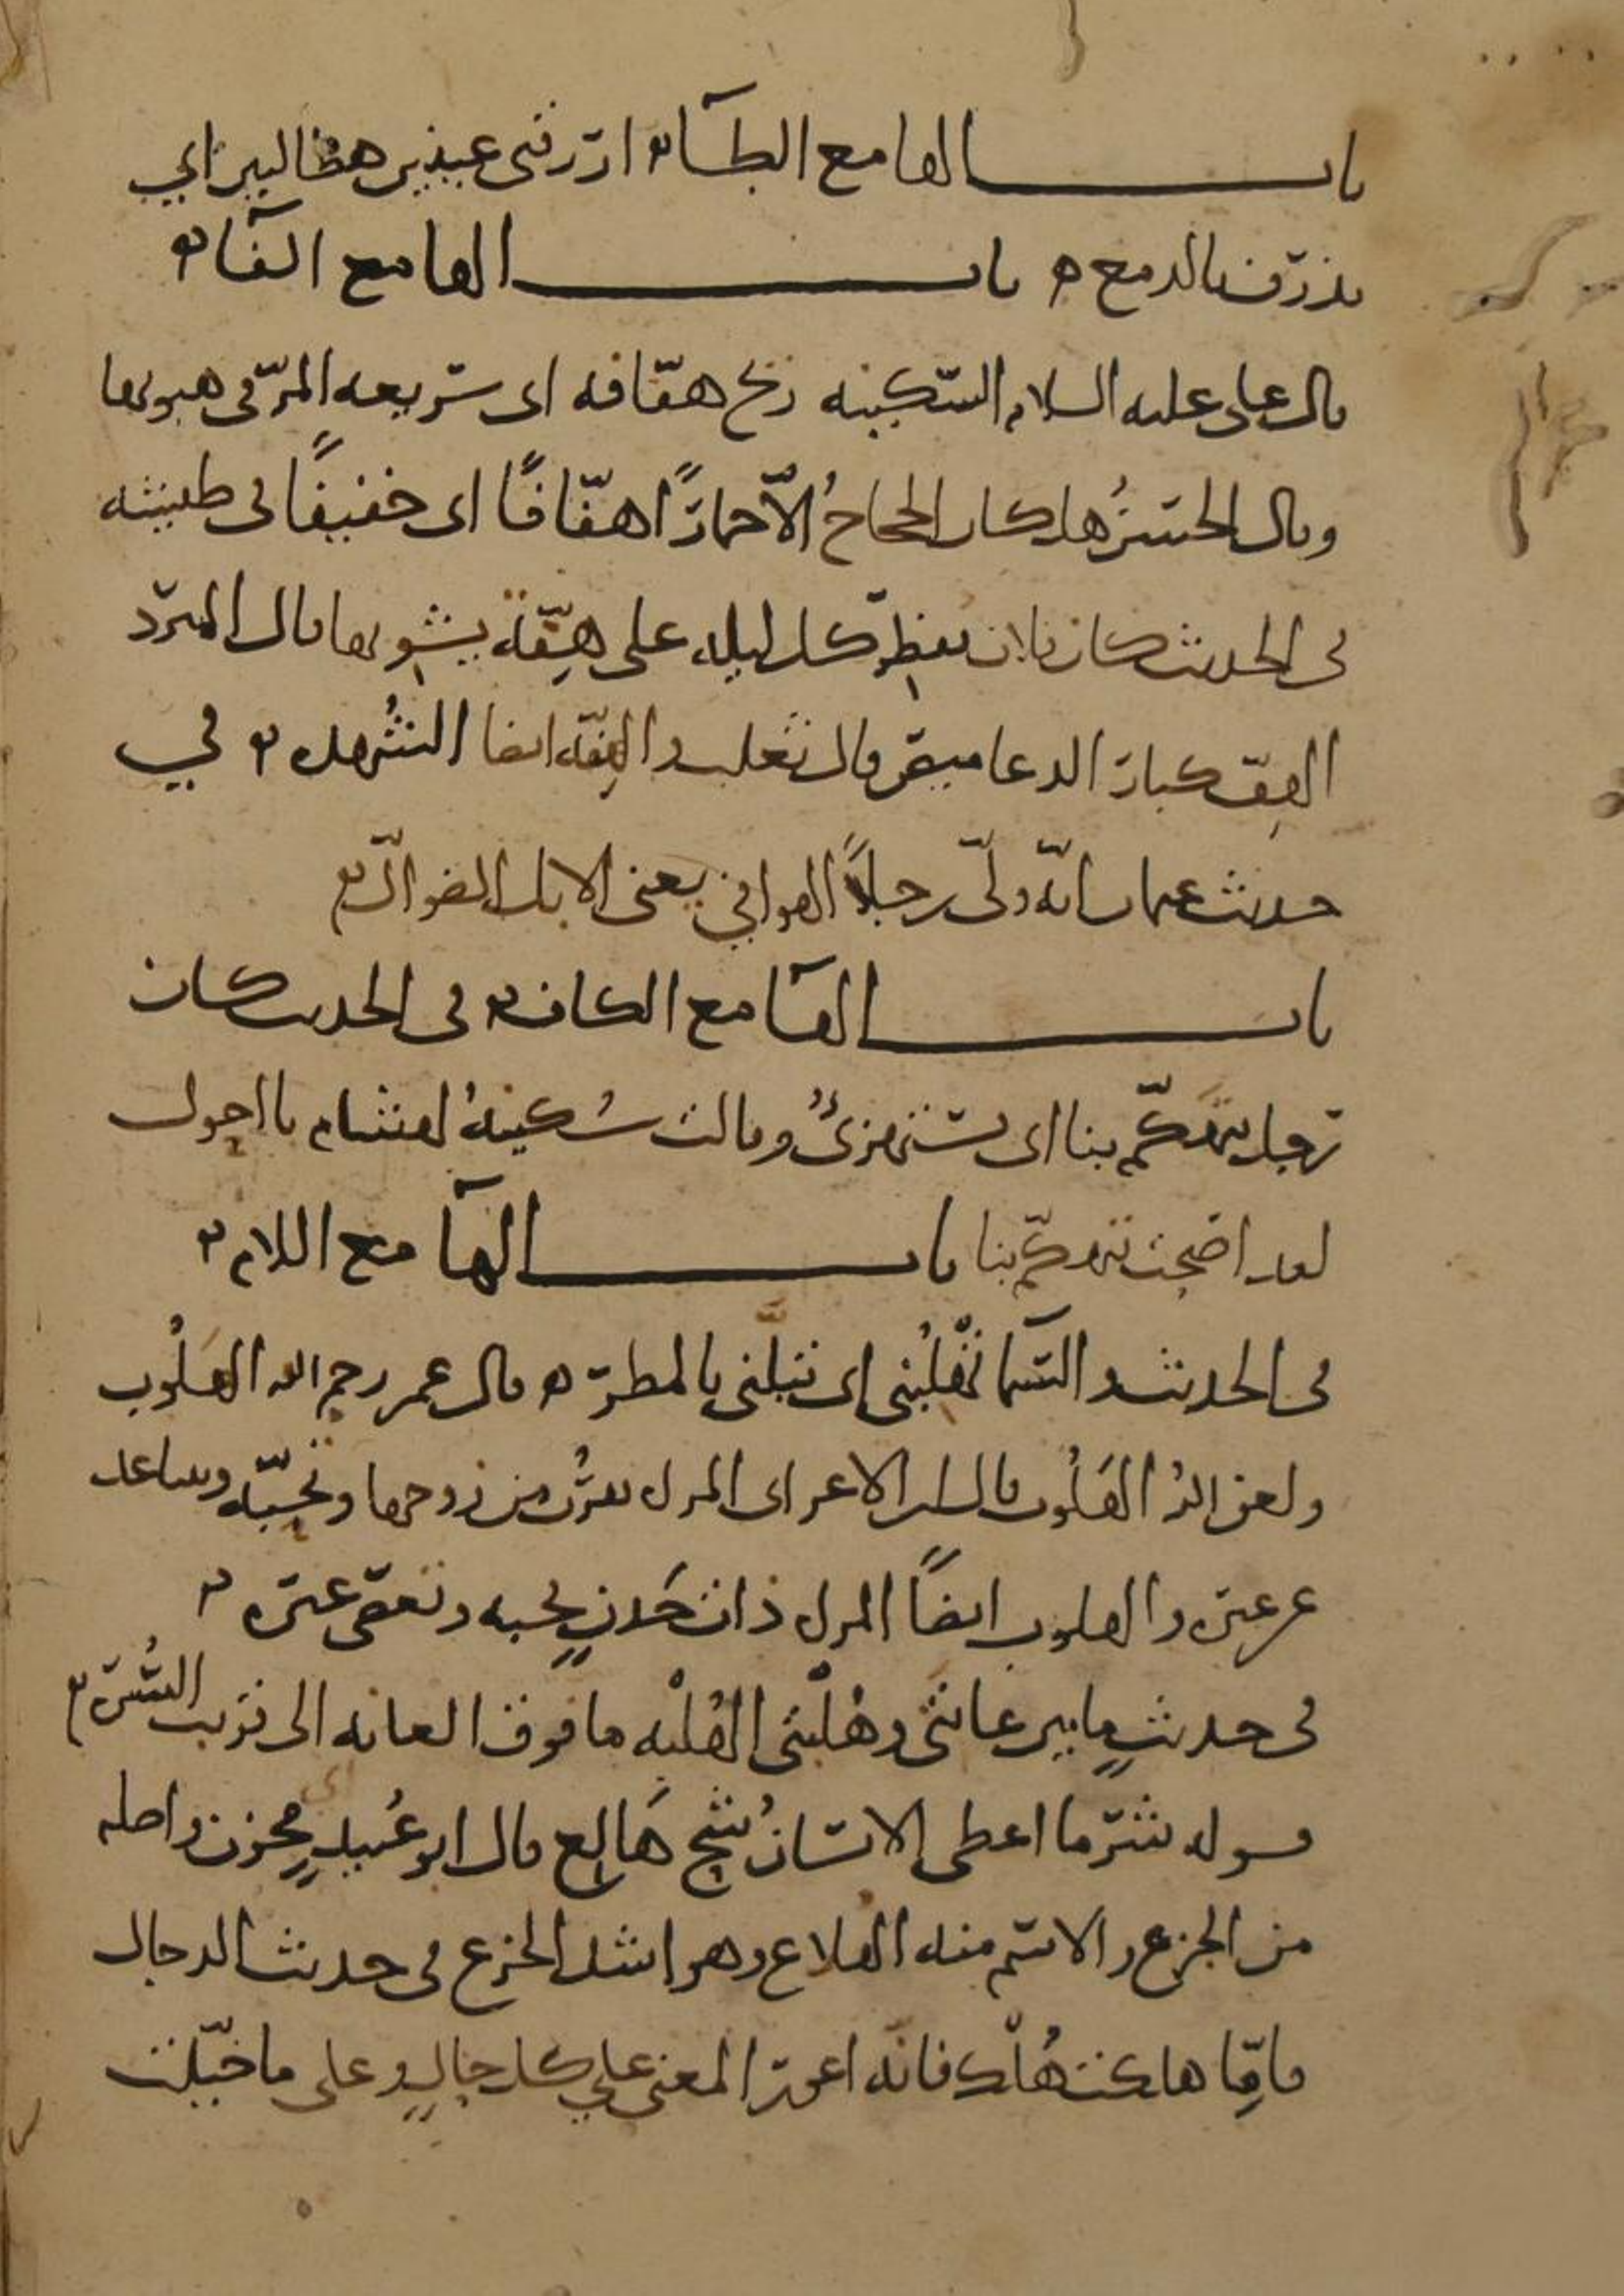 باب الها مع الطاء ارزقني عينين هطالتين اي
تذرفان بالدمع ه باب الها مع الفاء
قال علي عليه السلام السكينه ريح هفافه اي سريعه المر في هبوبها
وقال الحسن هل كان الحجاج الا حمارا هفافا اي خفيفا في طيشه
في الحديث كان فلان يفطر كل ليله على هفة يشويها قال المبرد
الهف كبار الدعاميص وقال ثعلب والهفة ايضا الشهده في
حديث عثمان انه ولى رجلا الهوافي يعني الابل الضوال
باب الها مع الكاف في الحديث كان
رجل يتهكم بنا اي يستهزئ وقالت سكينة لهشام يا احول
لقد اصبحت تتهكم بنا باب الها مع اللام
في الحديث والسما تهلبني اي تبلني بالمطر ه قال عمر رحم الله الهلوب
ولعن الله الهلوب قال ابن الاعرابي المراة تقرب من زوجها وتحبه وتباعد
عن غيره والهلوب ايضا المراة ذات خدن تحبه وتعصي غيره
في حديث ما بين عانتي وهلبتي الهلبه ما فوق العانه الى قريب السرة
قوله شر ما اعطي الانسان شح هالع قال ابو عبيد اي محزن واصله
من الجزع والاسم منه الهلاع وهو اشد الجزع في حديث الدجال
فاما هلكت هلك فانه اعور المعنى على كل حال وعلى ما خيلت